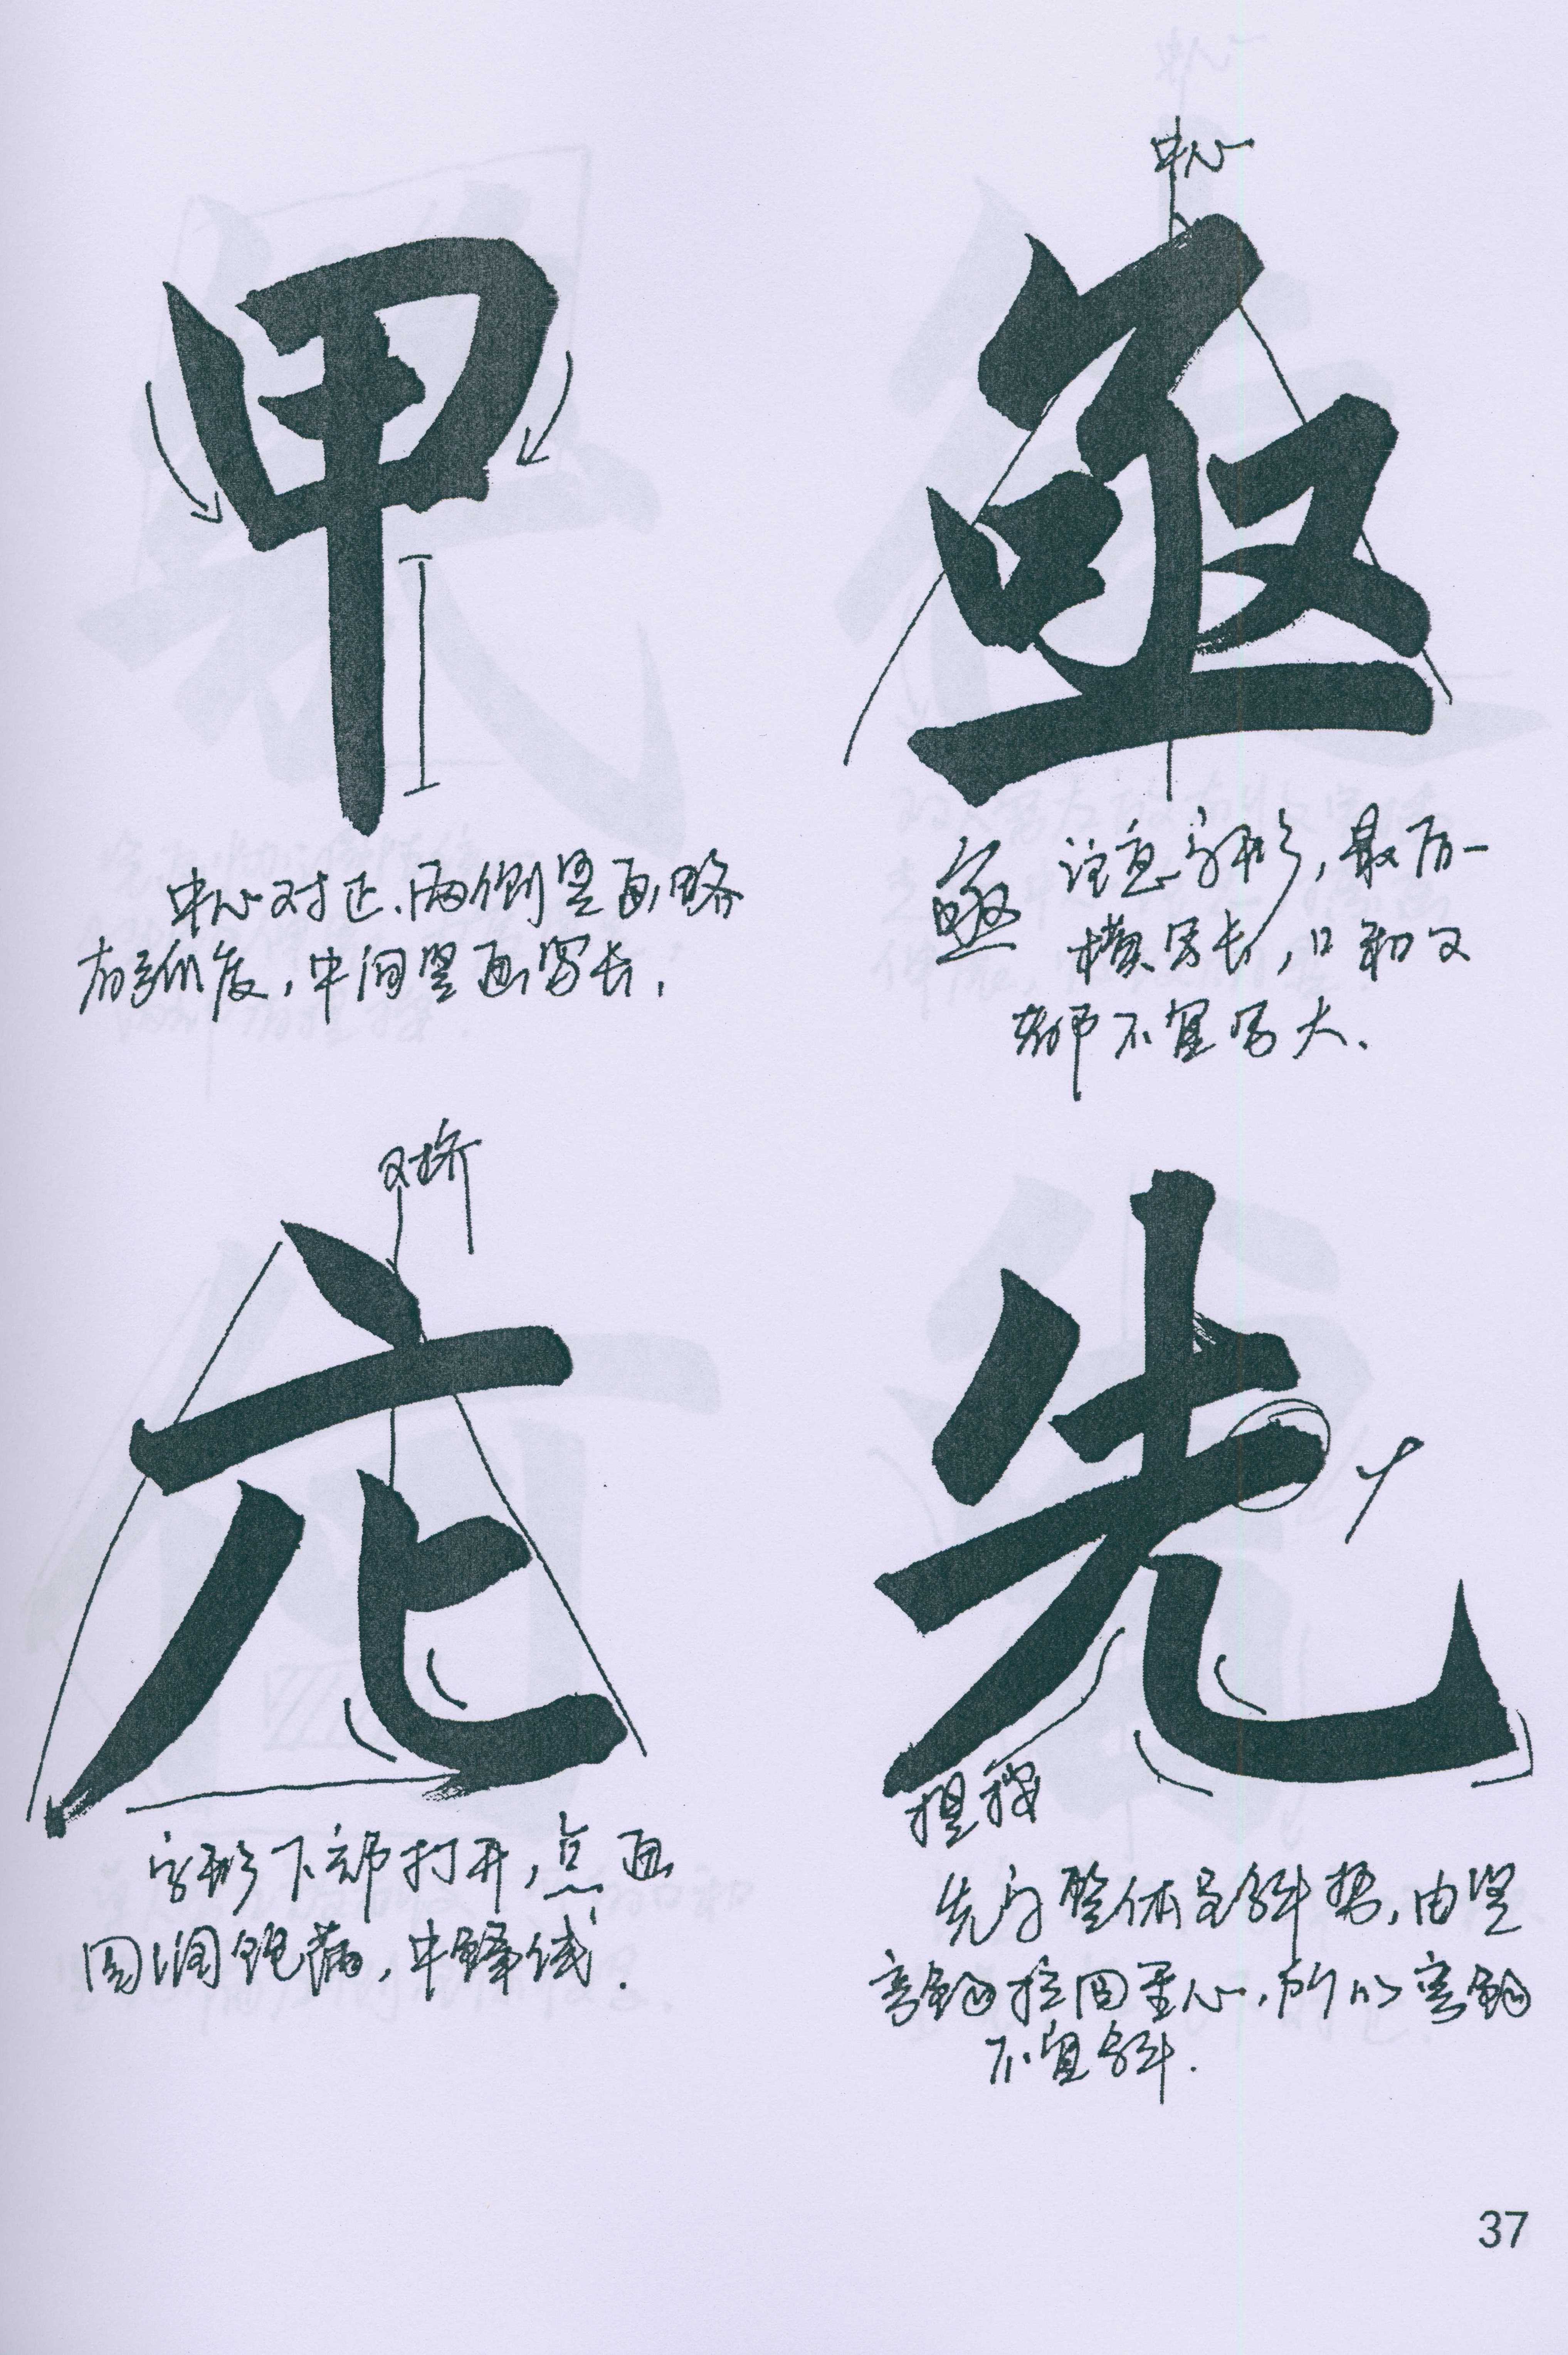 甲
中心对正.两侧竖画略
有弧度,中间竖画写长.
中心
亟
亟 注意字形,最后一
横写长,口和又
都不宜写大.
对齐
㡯
字形下部打开,点画
圆润饱满,中锋线.
先
提按
先字整体呈斜势,由竖
弯钩拉回重心,所以弯钩
不宜斜.
37